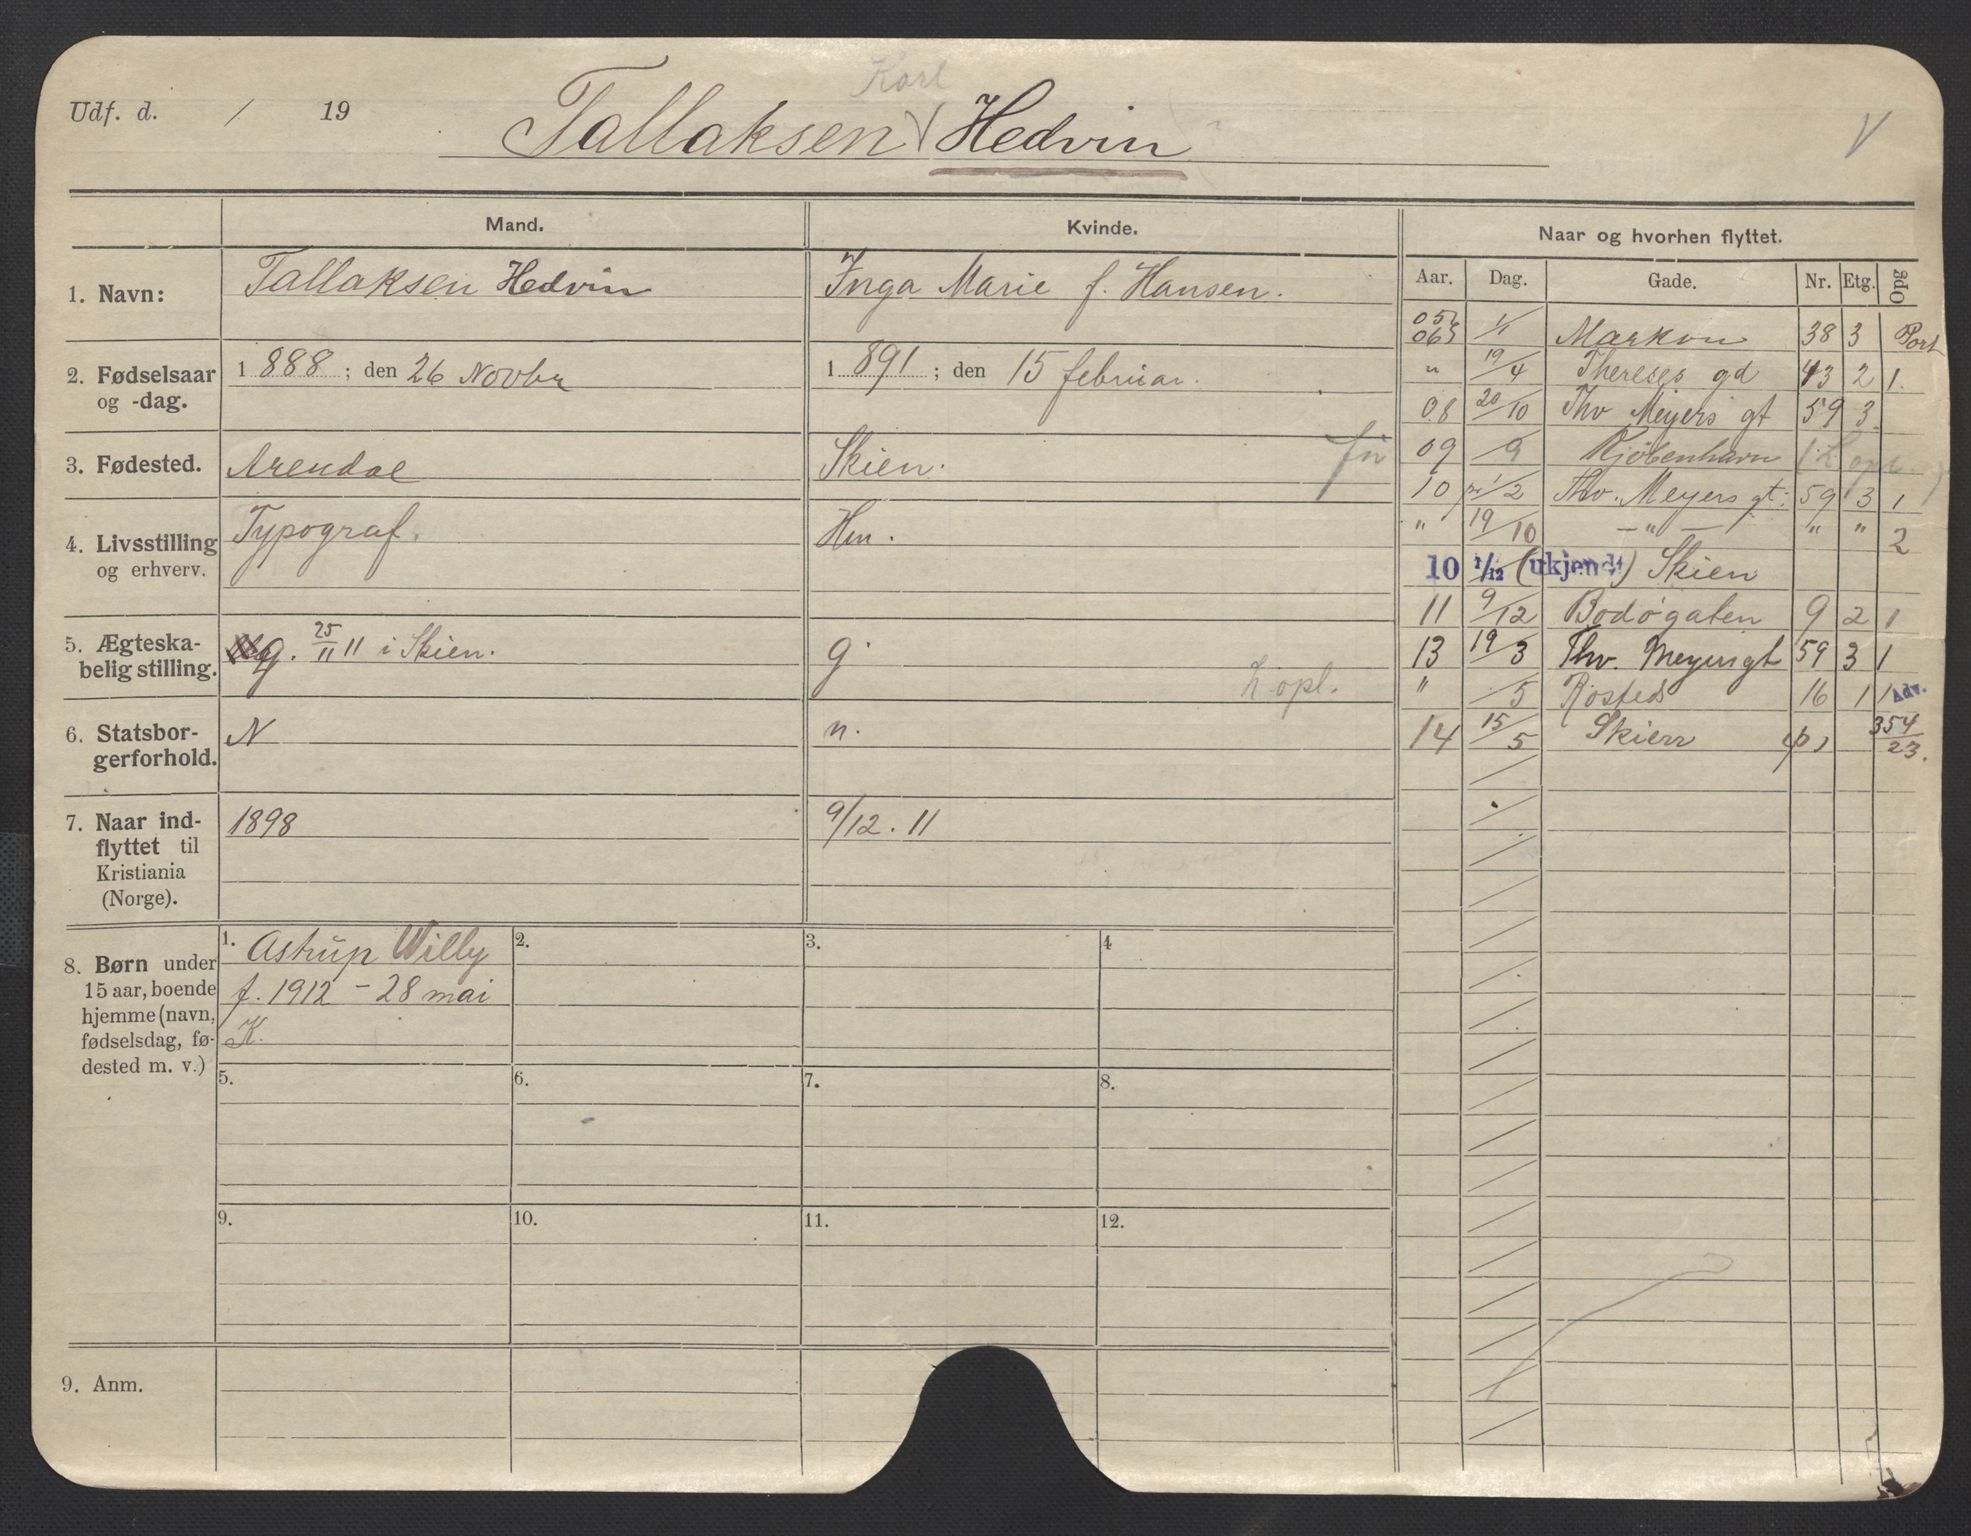 Karl
Udf. d. / 19 Tallaksen, Hedvin V
Mand. Kvinde. Naar og hvorhen flyttet.
Aar. Dag. Gade. Nr. Etg. Opg
1. Navn: Tallaksen Hedvin Inga Marie f. Hansen.
2. Fødselsaar og -dag. 1888; den 26 Novbr 1891; den 15 februar.
3. Fødested. Arendal Skien.
4. Livsstilling og erhverv. Typograf. Hm.
5. Ægteskabelig stilling. g. 25/11 11 i Skien. g.
L opl.
6. Statsborgerforhold. N n.
7. Naar indflyttet til Kristiania (Norge). 1898 9/12. 11
05
06 1/1 Markvn 38 3 Port
" 19/4 Thereses gd 43 2 1.
08 20/10 Thv Meyers gt 59 3.
09 /9 Kjøbenhavn
10 1/2 Thv. Meyers gt. 59 3 1
" 19/10 - " - " " 2
10 1/12 (ukjendt) Skien
11 9/12 Bodøgaten 9 2 1
13 19/3 Thv. Meyersgt 59 3 1
" /5 Rosteds 16 1 1 Adv.
14 15/5 Skien (p) 354/23.
8. Børn under 15 aar, boende hjemme (navn, fødselsdag, fødested m. v.)
1. Astrup Willy 2. 3. 4
f. 1912 - 28 mai
K.
5. 6. 7. 8.
9. 10. 11. 12.
9. Anm.